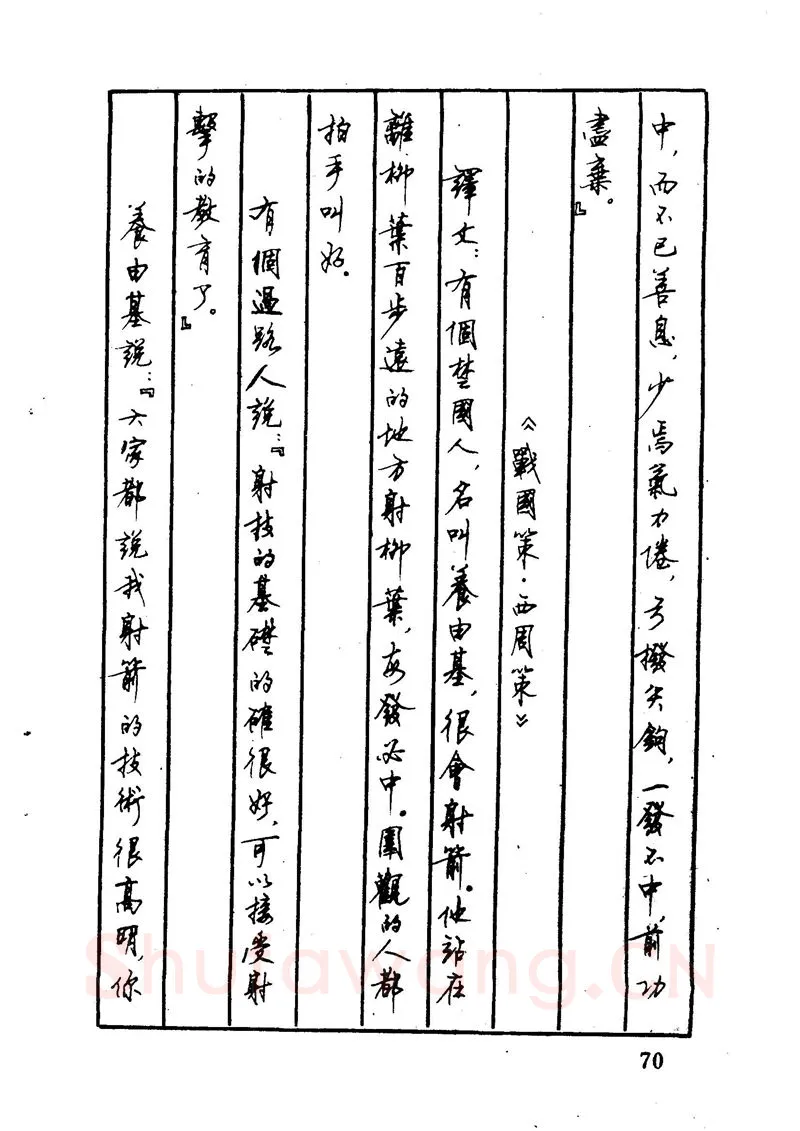 中，而不已善息，少焉氣力倦，弓撥矢鉤，一發不中，前功
盡棄。』
《戰國策·西周策》
譯文：有個楚國人，名叫養由基，很會射箭。他站在
離柳葉百步遠的地方射柳葉，每發必中。圍觀的人都
拍手叫好。
有個過路人說：『射技的基礎的確很好，可以接受射
擊的教育了。』
養由基說：『大家都說我射箭的技術很高明，你
70
Shufawang.CN